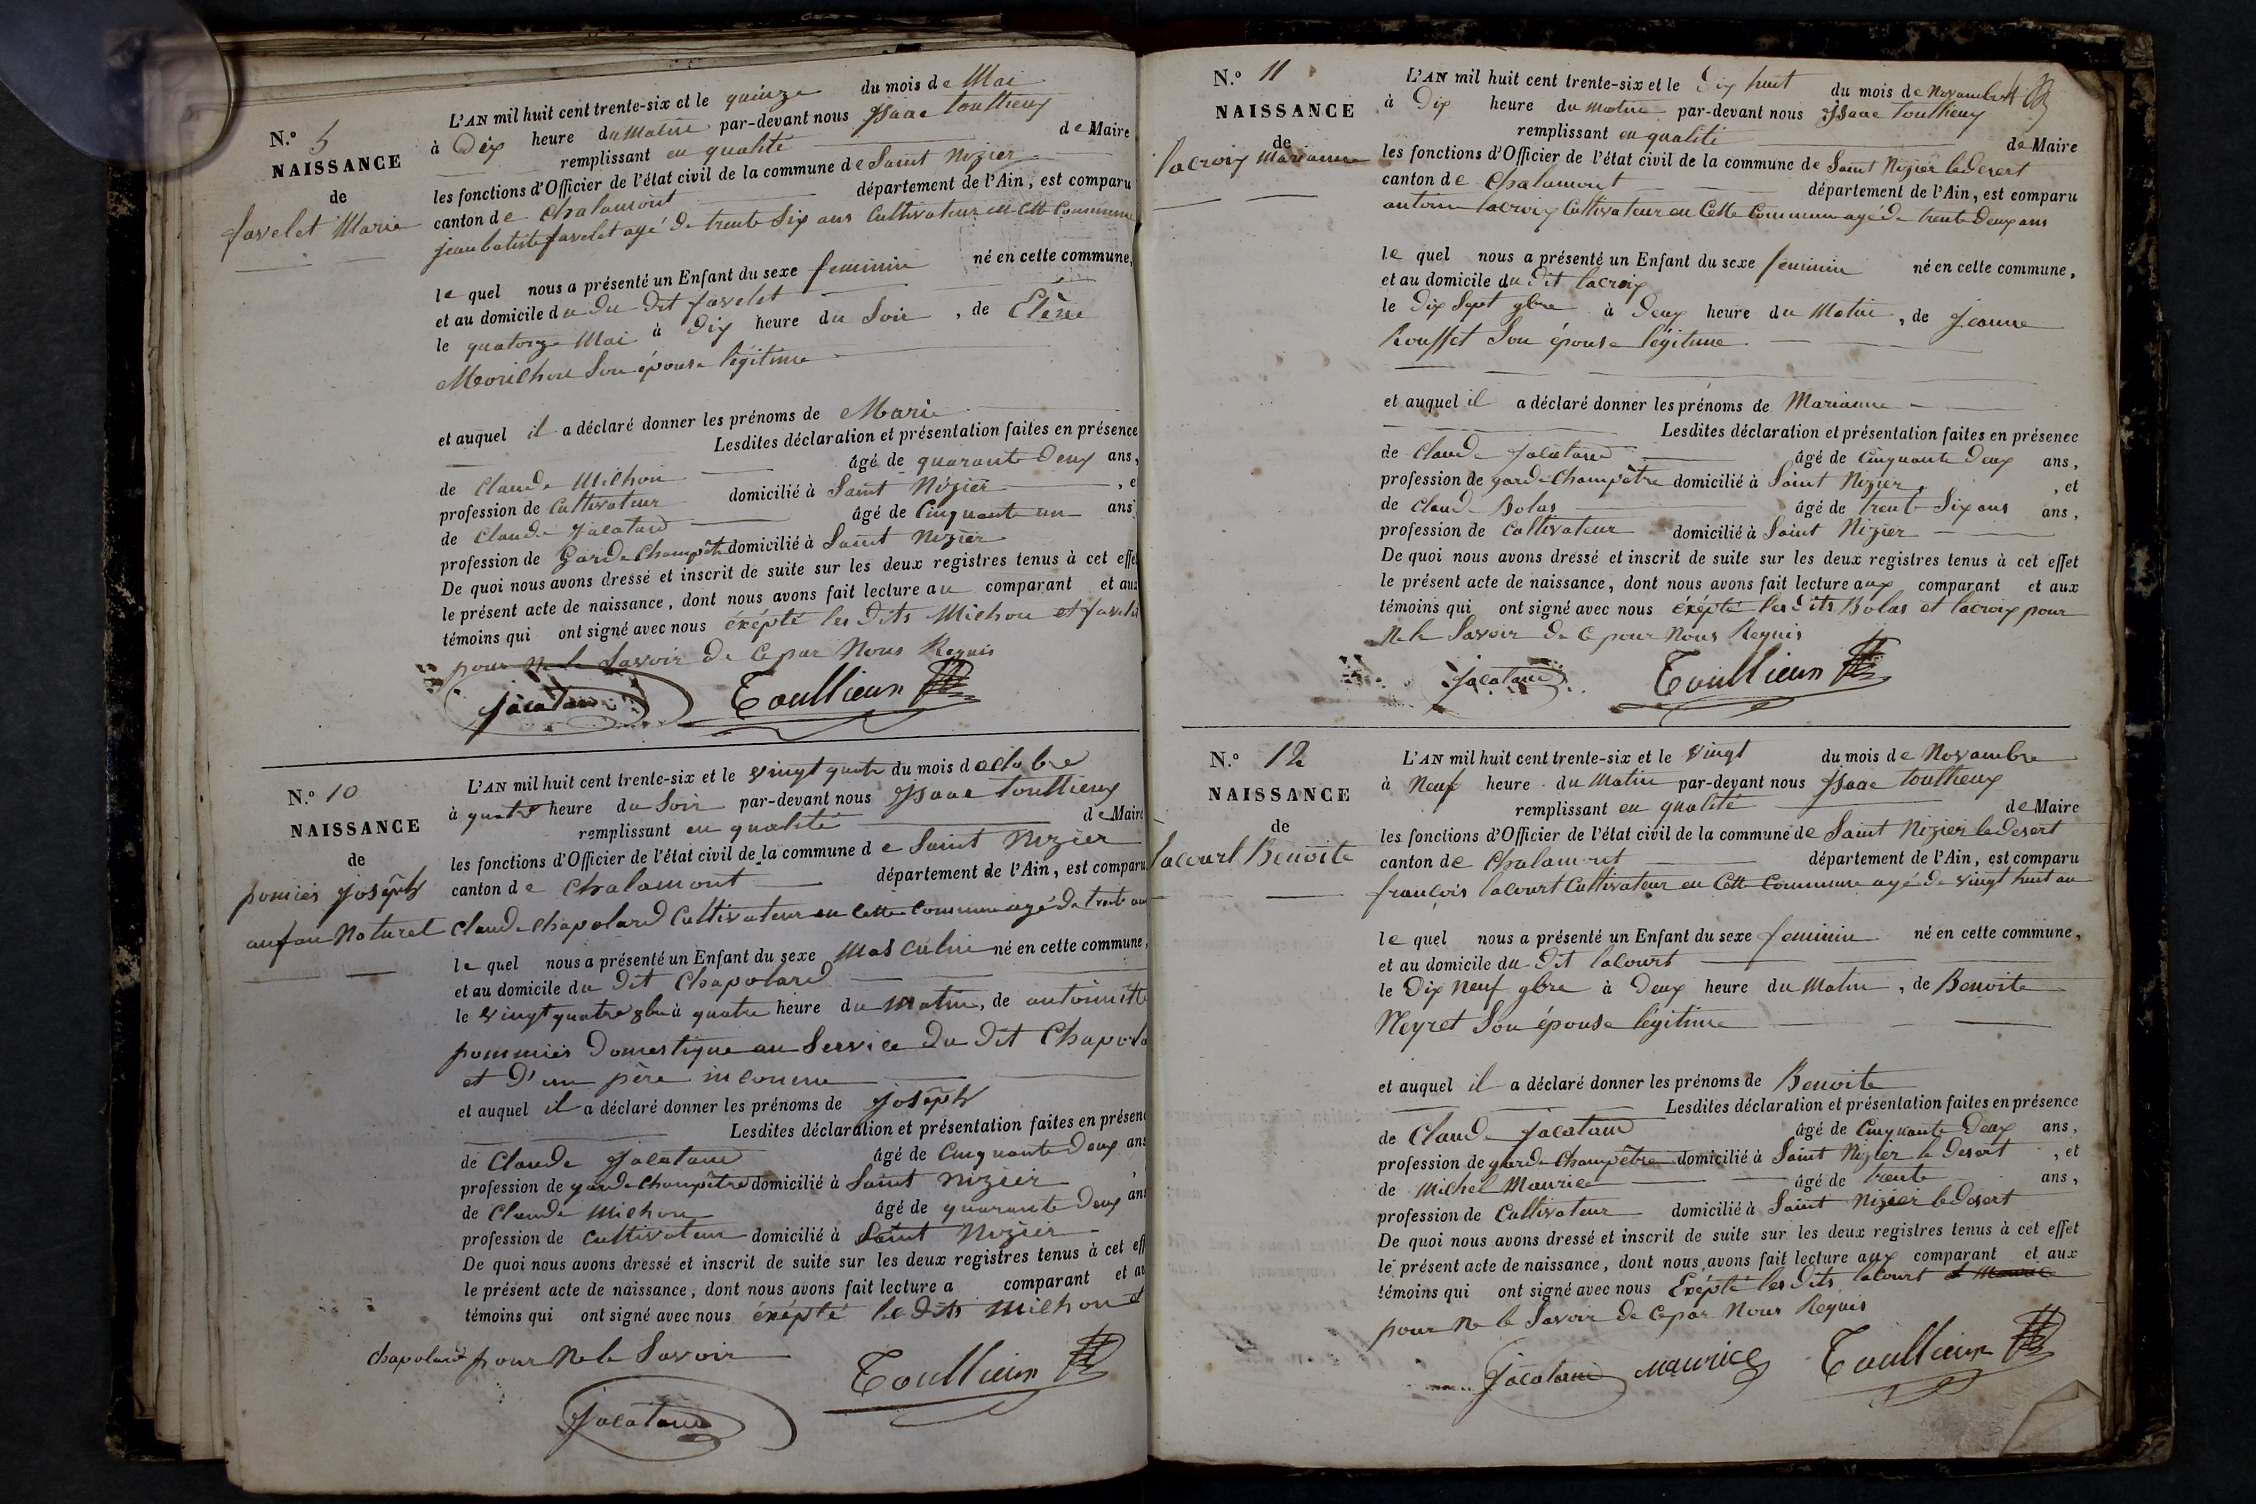 N.º 5
NAISSANCE
de
favelet Marie
L'AN mil huit cent trente-six et le quinze du mois de Mai
à Dix heure du Matin par-devant nous Isaac Toullieux
remplissant en qualité de Maire
les fonctions d'Officier de l'état civil de la commune de Saint Nizier
canton de Chalamont département de l'Ain, est comparu
jean batiste favelet agé de trente Six ans Cultivateur en Cette Commune
le quel nous a présenté un Enfant du sexe feminin né en cette commune,
et au domicile du du dit favelet
le quatorze Mai à Dix heure du Soir, de Elène
Morichon Son épouse légitime
et auquel il a déclaré donner les prénoms de Marie
Lesdites déclaration et présentation faites en présence
de Claude Michon âgé de quarante Deux ans,
profession de Cultivateur domicilié à Saint Nizier, e
de Claude Jacatard âgé de Cinquante un ans
profession de Garde Champêt domicilié à Saint Nizier
De quoi nous avons dressé et inscrit de suite sur les deux registres tenus à cet effe
le présent acte de naissance, dont nous avons fait lecture au comparant et aux
témoins qui ont signé avec nous éxépté les Dits Michon et favelet
pour Ne le Savoir De Ce par Nous Requis
Jacatard Toullieux
N.º 10
NAISSANCE
de
pomier joseph
anfan Naturel
L'AN mil huit cent trente-six et le vingt quatre du mois d octobre
à quatre heure du Soir par-devant nous Isaac Toullieux
remplissant en qualité de Maire
les fonctions d'Officier de l'état civil de la commune de Saint Nizier
canton de Chalamont département de l'Ain, est comparu
Claude Chapolard Cultivateur en Cette Commune agé De trente an
le quel nous a présenté un Enfant du sexe Masculin né en cette commune,
et au domicile du Dit Chapolard
le vingt quatre 8bre à quatre heure du Matin, de antoinette
pommier Domestique au Service du Dit Chapola
et D'un père inconnu
et auquel il a déclaré donner les prénoms de joseph
Lesdites déclaration et présentation faites en présenc
de Claude Jacatard âgé de Cinquante Deux ans
profession de garde Champêtre domicilié à Saint Nizier,
de Claude Michon âgé de quarante Deux ans
profession de Cultivateur domicilié à Saint Nizier
De quoi nous avons dressé et inscrit de suite sur les deux registres tenus à cet eff
le présent acte de naissance, dont nous avons fait lecture a comparant et au
témoins qui ont signé avec nous éxépté les Dits Michon et
Chapolard pour Ne le Savoir
Toullieux
Jacatard
N.º 11
NAISSANCE
de
lacroix Marianne
L'AN mil huit cent trente-six et le Dix huit du mois de Novambre
à Dix heure du Matin par-devant nous Isaac Toullieux
remplissant en qualité de Maire
les fonctions d'Officier de l'état civil de la commune de Saint Nizier le Desert
canton de Chalamont département de l'Ain, est comparu
antoine lacroix Cultivateur en Cette Commune agé de trente Deux ans
le quel nous a présenté un Enfant du sexe feminin né en cette commune,
et au domicile du Dit lacroix
le Dix Sept 9bre à Deux heure du Matin, de Jeanne
Rousset Son épouse légitime
et auquel il a déclaré donner les prénoms de Marianne
Lesdites déclaration et présentation faites en présence
de Claude Jacatard âgé de Cinquante Deux ans,
profession de garde Champêtre domicilié à Saint Nizier, et
de Claude Bolas âgé de trente Six ans ans,
profession de Cultivateur domicilié à Saint Nizier
De quoi nous avons dressé et inscrit de suite sur les deux registres tenus à cet effet
le présent acte de naissance, dont nous avons fait lecture aux comparant et aux
témoins qui ont signé avec nous éxépté les Dits Bolas et lacroix pour
Ne le Savoir De Ce pour Nous Requis
Jacatard Toullieux
N.º 12
NAISSANCE
de
lacourt Benoite
L'AN mil huit cent trente-six et le vingt du mois de Novambre
à Neuf heure du Matin par-devant nous Isaac Toullieux
remplissant en qualité de Maire
les fonctions d'Officier de l'état civil de la commune de Saint Nizier le Desert
canton de Chalamont département de l'Ain, est comparu
françois lacourt Cultivateur en Cette Commune agé de vingt huit an
le quel nous a présenté un Enfant du sexe feminin né en cette commune,
et au domicile du Dit lacourt
le Dix Neuf 9bre à Deux heure du Matin, de Benoite
Neyret Son épouse légitime
et auquel il a déclaré donner les prénoms de Benoite
Lesdites déclaration et présentation faites en présence
de Claude Jacatard âgé de Cinquante Deux ans,
profession de garde Champêtre domicilié à Saint Nizier le Desert, et
de Michel Maurice âgé de trente ans,
profession de Cultivateur domicilié à Saint Nizier le Desert
De quoi nous avons dressé et inscrit de suite sur les deux registres tenus à cet effet
le présent acte de naissance, dont nous avons fait lecture aux comparant et aux
témoins qui ont signé avec nous Exépté les Dits lacourt et Maurice
pour Ne le Savoir De Ce par Nous Requis
Jacatard Maurice Toullieux